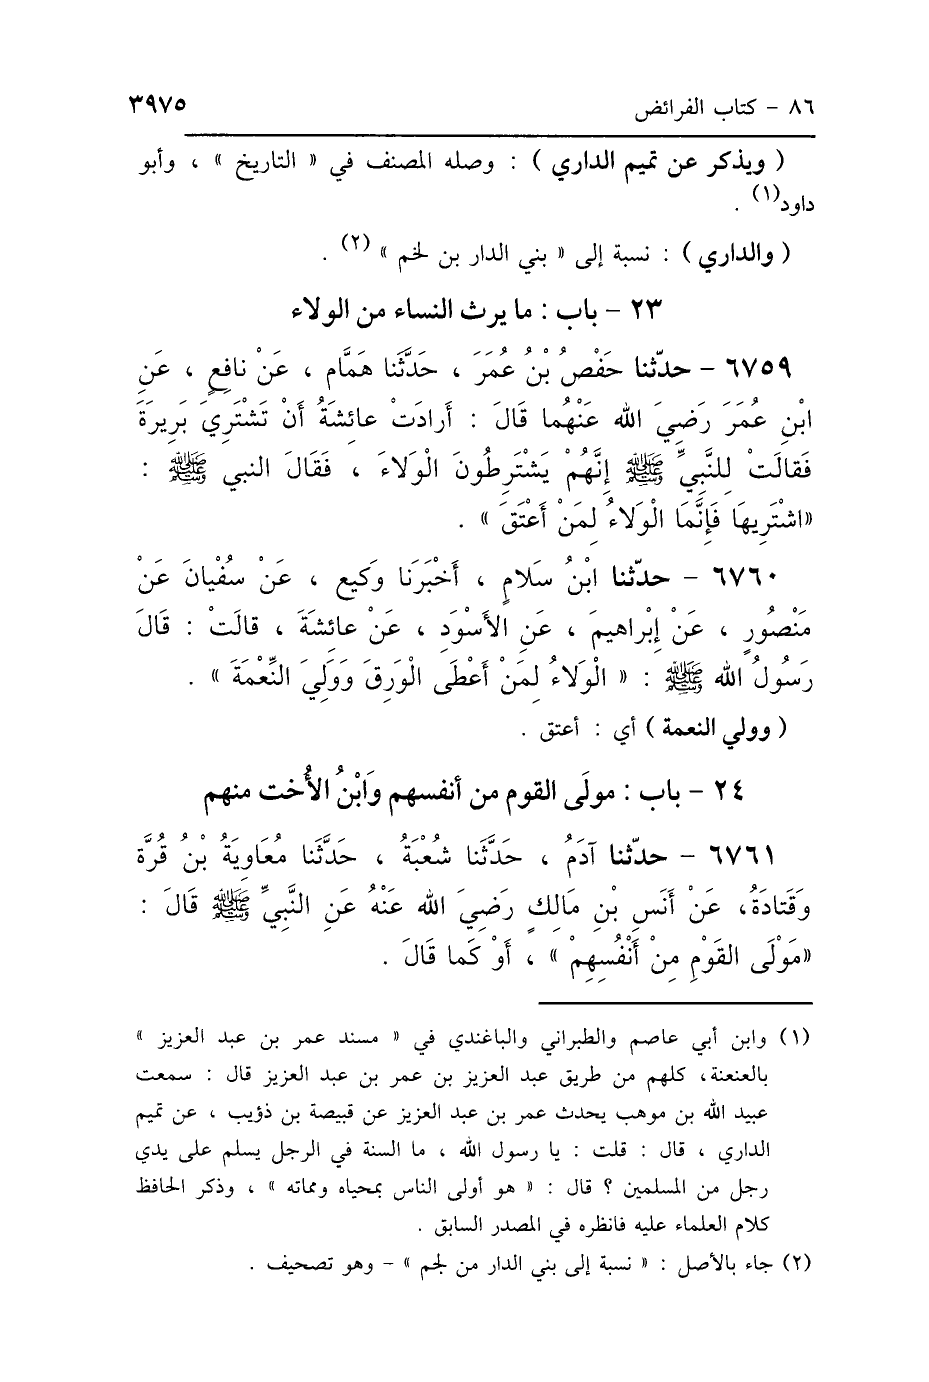 ٨٦ – كتاب الفرائض ٣٩٧٥
( ويذكر عن تميم الداري ) : وصله المصنف في « التاريخ » ، وأبو
داود(١) .
( والداري ) : نسبة إلى « بني الدار بن لخم » (٢) .
٢٣ – باب : ما يرث النساء من الولاء
٦٧٥٩ – حدّثنا حَفْصُ بْنُ عُمَرَ ، حَدَّثَنا هَمَّام ، عَنْ نافِعٍ ، عَنِ
ابْنِ عُمَرَ رَضِيَ الله عَنْهُما قَالَ : أَرادَتْ عائِشَةُ أَنْ تَشْتَرِيَ بَرِيرَةَ
فَقالَتْ لِلنَّبِيِّ ﷺ إِنَّهُمْ يَشْتَرِطُونَ الْوَلاءَ ، فَقَالَ النبي ﷺ :
«اشْتَرِيهَا فَإِنَّمَا الْوَلاءُ لِمَنْ أَعْتَقَ » .
٦٧٦٠ – حدّثنا ابْنُ سَلامٍ ، أَخْبَرَنا وَكيع ، عَنْ سُفْيانَ عَنْ
مَنْصُورٍ ، عَنْ إِبْراهيمَ ، عَنِ الأَسْوَدِ ، عَنْ عائِشَةَ ، قالَتْ : قَالَ
رَسُولُ الله ﷺ : « الْوَلاءُ لِمَنْ أَعْطَى الْوَرِقَ وَوَلِيَ النِّعْمَةَ » .
( وولي النعمة ) أي : أعتق .
٢٤ – باب : مولَى القوم من أنفسهم وَابْنُ الأُخت منهم
٦٧٦١ – حدّثنا آدَمُ ، حَدَّثَنا شُعْبَةُ ، حَدَّثَنا مُعَاوِيَةُ بْنُ قُرَّةَ
وَقَتَادَةُ، عَنْ أَنَسِ بْنِ مَالِكٍ رَضِيَ الله عَنْهُ عَنِ النَّبِيِّ ﷺ قَالَ :
«مَوْلَى القَوْمِ مِنْ أَنْفُسِهِمْ » ، أَوْ كَما قَالَ .
(١) وابن أبي عاصم والطبراني والباغندي في « مسند عمر بن عبد العزيز »
بالعنعنة، كلهم من طريق عبد العزيز بن عمر بن عبد العزيز قال : سمعت
عبيد الله بن موهب يحدث عمر بن عبد العزيز عن قبيصة بن ذؤيب ، عن تميم
الداري ، قال : قلت : يا رسول الله ، ما السنة في الرجل يسلم على يدي
رجل من المسلمين ؟ قال : « هو أولى الناس بمحياه ومماته » ، وذكر الحافظ
كلام العلماء عليه فانظره في المصدر السابق .
(٢) جاء بالأصل : « نسبة إلى بني الدار من لجم » – وهو تصحيف .